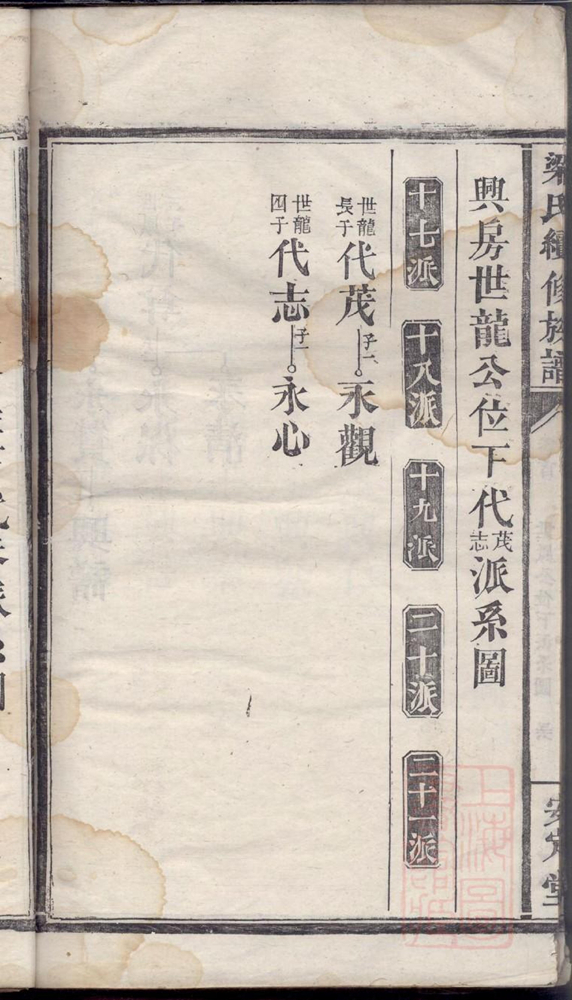 梁氏續修族譜
安定堂
興房世龍公位下代茂志派系圖
十七派 十八派 十九派 二十派 二十一派
世龍長子代茂 子一 永觀
世龍四子代志 子一 永心
上海圖